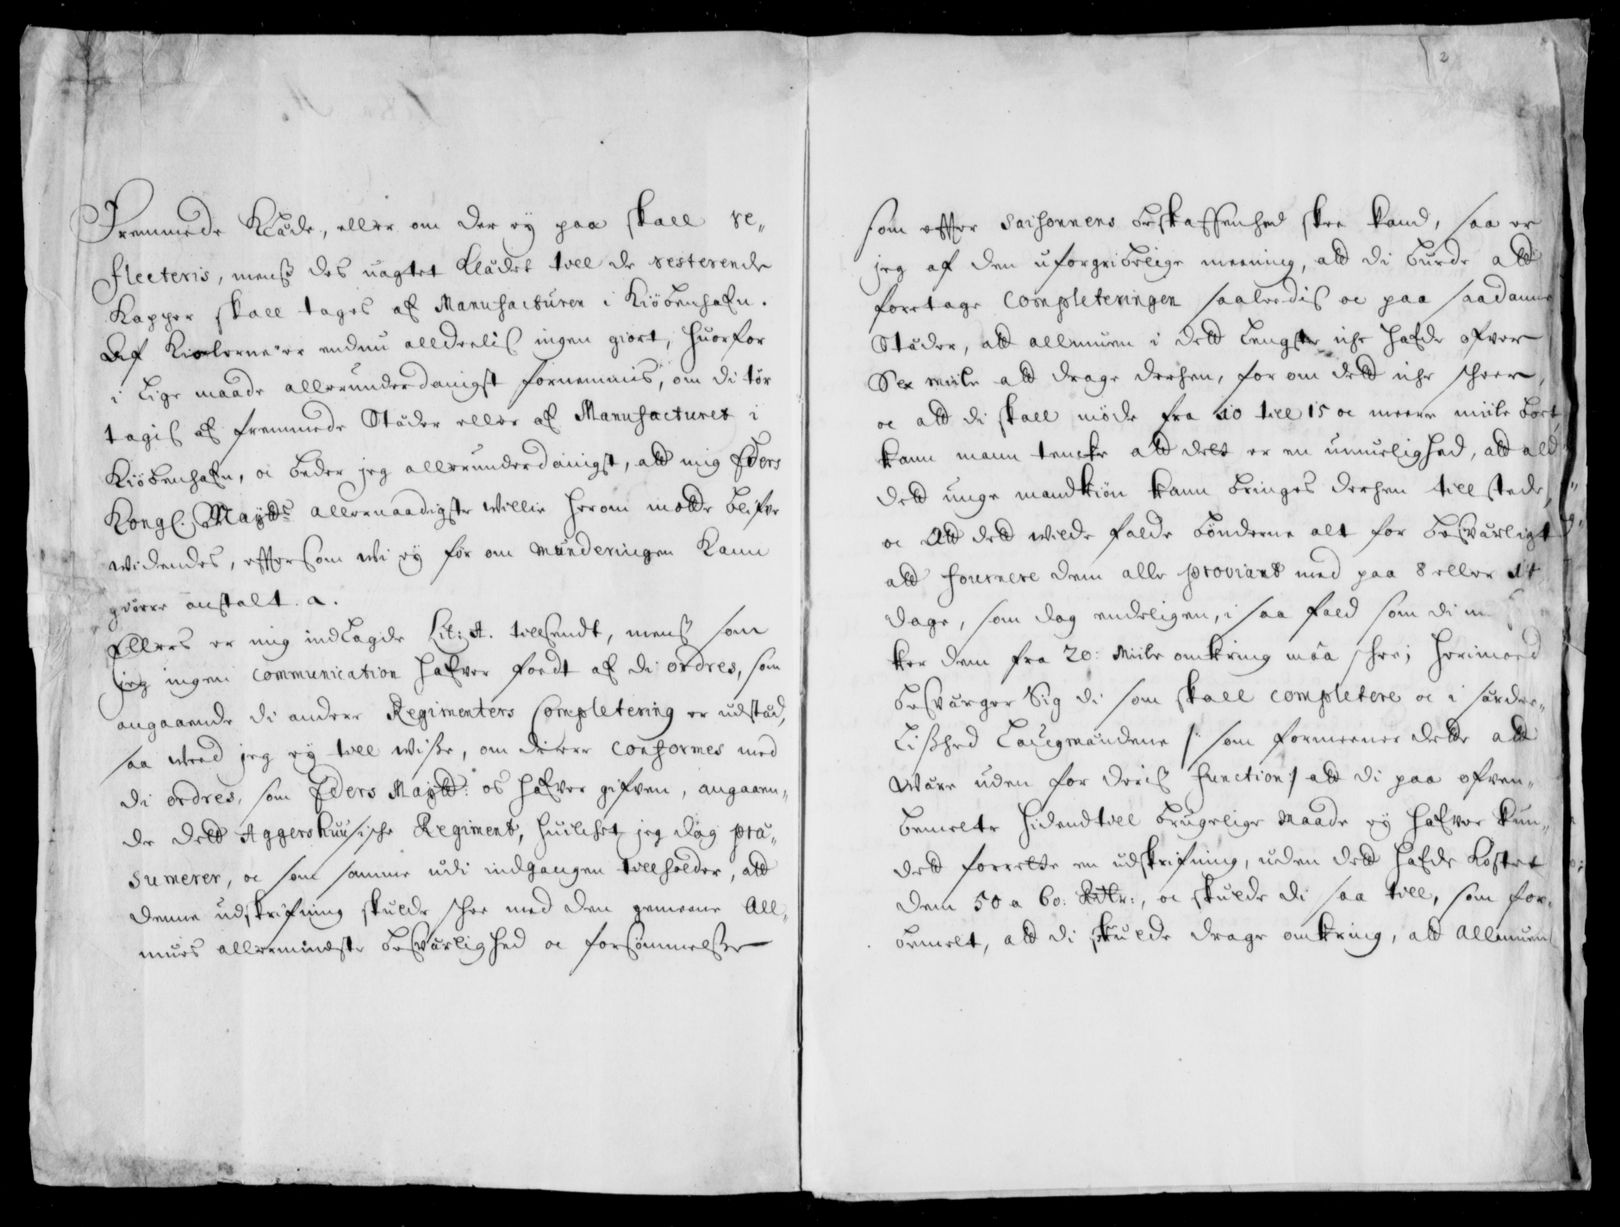 2
Fremmede Klæde, eller om der ey paa skall re„
flecteris, menß des uagtet Klædet till de resterende
Kapper skall tages af Manufacturen i Kiöbenhafn.
Af Kiolerne er endnu alldeelis ingen giort, huorfor
i lige maade allerunderdanigst fornemmis, om di tör
tagis af fremmede Stæder eller af Manufacturet i
Kiöbenhafn, oc beder jeg allerunderdanigst, att mig Eders
Kongl. Maytts allernaadigste Willie herom motte blifve
widendes, effterßom wi ey för om munderingen kann
giörre anstalt. a.
Ellers er mig indlagde Lit: A. tillsendt, menß som
jeg ingen communication hafver foedt af di ordres, som
angaaende di andere Regimenters Completering er udstæd,
saa weed jeg ey till wisse, om di ere conformes med
di ordres, som Eders Maytt: os hafver gifven, angaaen„
de dett Aggershuusische Regiment, huilchet jeg dog præ„
sumerer, oc som samme udi indgangen tillholder, att
denne udskrifning skulde schee med den gemeene All„
mues allerminste besværlighed oc forsömmelse
som effter saisonnens beskaffenhed skee kand, saa er
jeg af den uforgribelige meening, att di burde att
foretage Completeringen saaledis oc paa saadanne
Stæder, att allmuen i dett lengste iche hafde ofver
Sex miile att drage derhen, for om dett iche scheer,
oc att di skall möde fra 10 till 15 oc meere miile bort
kann mann tencke att dett er en umuelighed, att all
dett unge mandkiön kann bringes derhen till stede,
oc Att dett wilde falde bönderne alt for besværligt
att fournere dem alle proviant med paa 8 eller 14
dage, som dog endeligen, i saa fald som di
ker dem fra 20: Miile omkring maa schee; Herimoed
besværger Sig di som skall completere oc i særde„
lißhed Laugmændene /: som formeener dette att
Være uden for deriß function :/ att di paa ofven„
bemelte hidendtill brugelige Maade ey hafver kun„
dett forrette en udskrifning, uden dett hafde kostet
dem 50 a 60: Rdlr:, oc skulde di saa till, som for„
bemelt, att di skulde drage omkring, att Allmuen